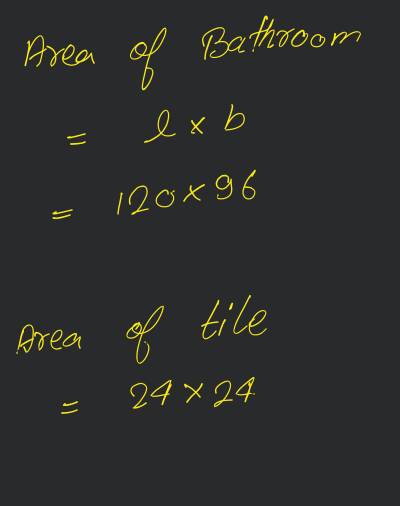 Area of Bathroom
= l × b
= 120 × 96
Area of tile
= 24 × 24